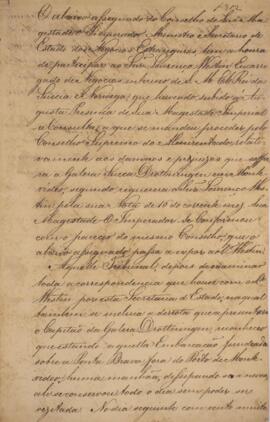 O abaixo assignado do Conselho de Sua Ma-
gestade o Imperador Ministro e Secretario de
Estado dos Negocios Estrangeiros tem a honra
de participar ao Snr. Lourenço Westin Encarre-
gado de Negocios interino de S. M. El Rei da
Suecia e Noruega, que havendo subido a Au-
gusta Presença de Sua Magestade Imperial
a Consulta, a que se mandou proceder pelo
Conselho Supremo do Almirantado, relati-
vamente aos damnos e prejuizos que soffre-
ra a Galera Sueca Drottningen em Monte-
video, segundo requerera o Snr. Lourenço Wes-
tin pela sua Nota de 10 do corrente mez, Sua
Magestade O Imperador Se Conformou
com o parecer do mesmo Conselho, que o
abaixo assignado passa a expor ao Sr. Westin.
Aquelle Tribunal, depois de examinar
toda a correspondencia que houve com o Sr.
Westin por esta Secretaria d'Estado, na qual
tambem se inclue a derrota que apresentou
o Capitão da Galera Drottningen, conheceo
que estando aquella Embarcação fundeada
sobre a Ponta Brava fora do Porto de Monte-
video, huma manhãa, dissipando-se a nevoa,
ali se conservou todo o dia sem poder ser
vezitada. No dia seguinte com vento muito